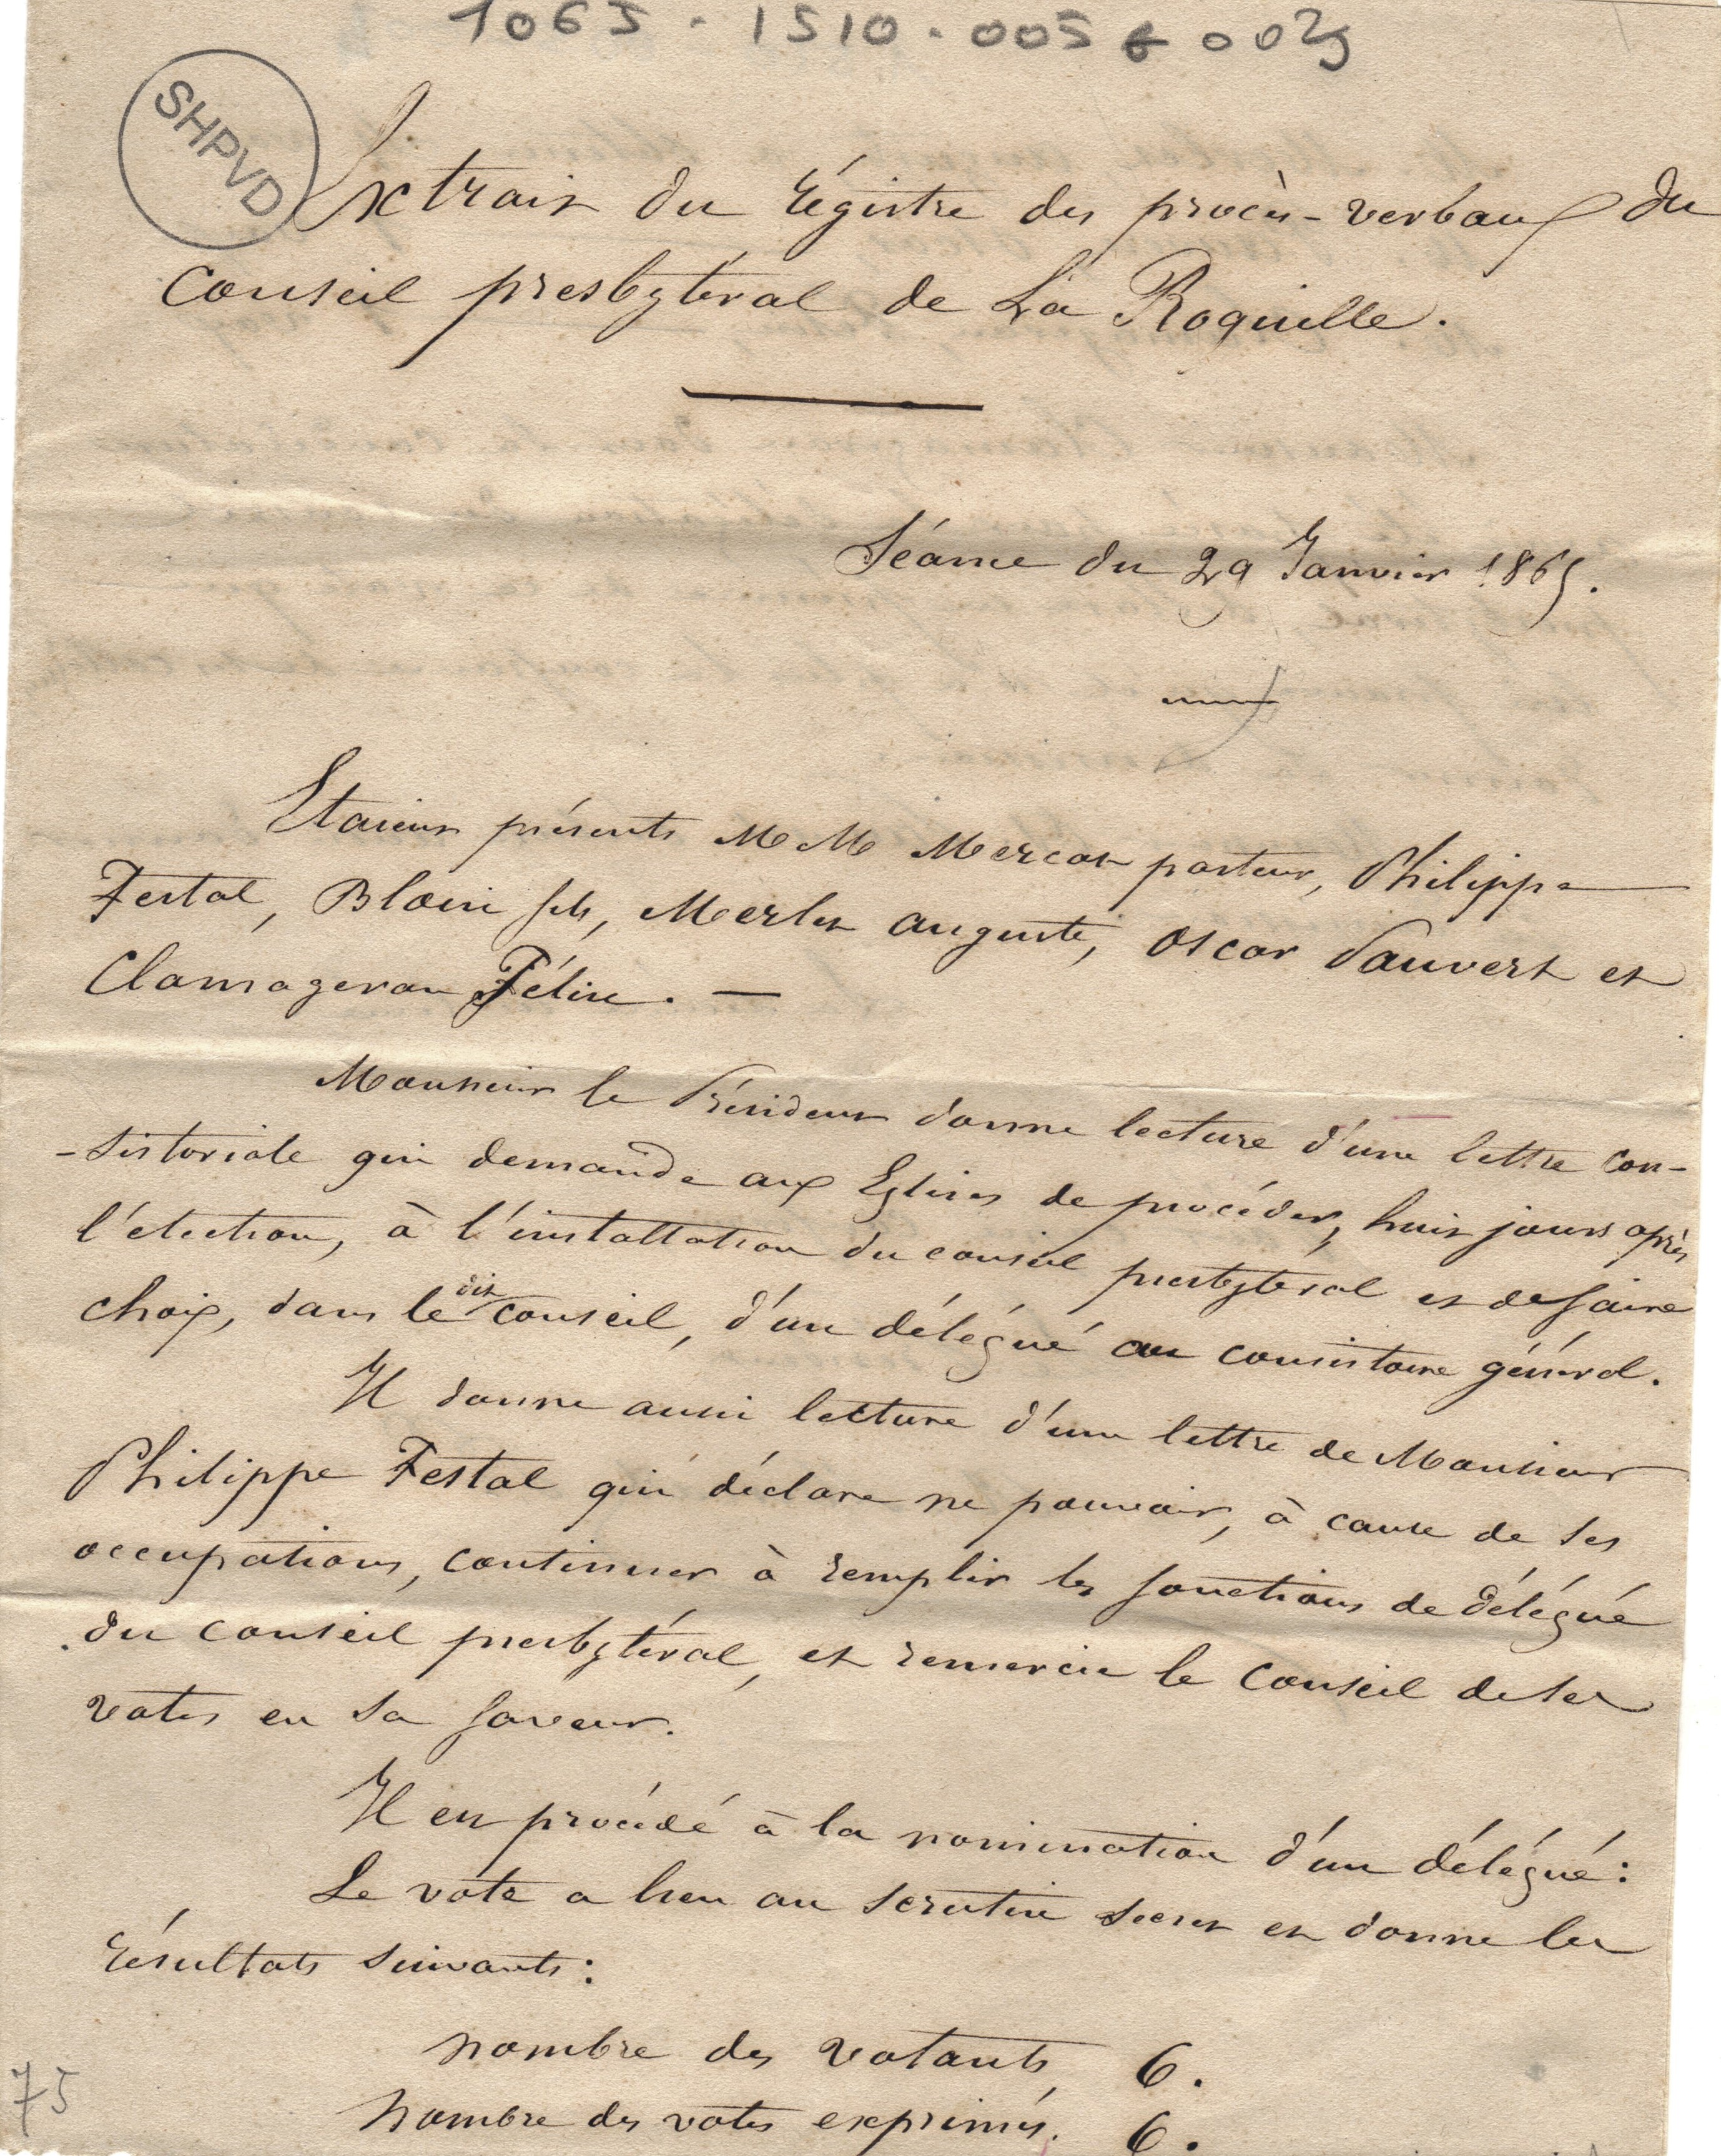 1065 - 1510 - 005 6 0025
SHPVD
Extrait du régistre des procès-verbaux du
Conseil presbytéral de La Roquille.
Séance du 29 Janvier 1865.
Etaient présents MM Mercat pasteur, Philippe
Festal, Blouin fils, Merlet Auguste, Oscar Pauvert et
Clamageran Féline. —
Monsieur le Président donne lecture d'une lettre con-
-sistoriale qui demande aux Eglises de procéder, huit jours après
l'élection, à l'installation du conseil presbytéral et de faire
choix, dans le dit conseil, d'un délégué au consistoire général.
Il donne aussi lecture d'une lettre de Monsieur
Philippe Festal qui déclare ne pouvoir, à cause de ses
occupations, continuer à remplir les fonctions de délégué
du conseil presbytéral, et remercie le Conseil de ses
votes en sa faveur.
Il est procédé à la nomination d'un délégué:
Le vote a lieu au scrutin secret et donne les
résultats suivants:
nombre des votants 6.
Nombre des votes exprimés. 6.
75